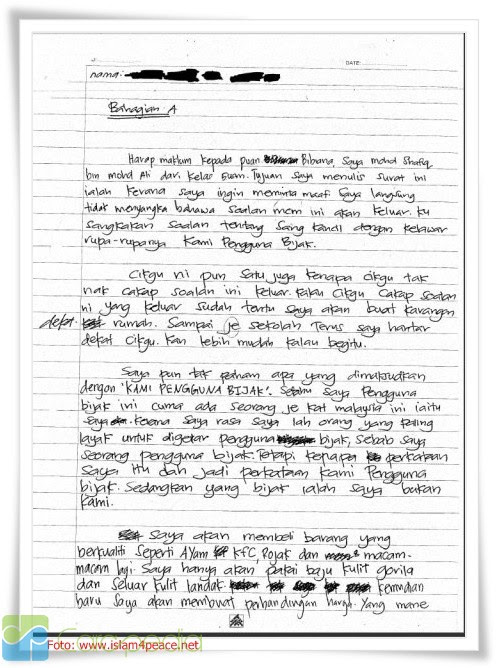 DATE:
nama:
Bahagian A
Harap maklum kepada puan Bibiana, Saya mohd Shafiq
bin mohd Ali dari kelas Enam. Tujuan saya menulis surat ini
ialah kerana saya ingin meminta maaf. Saya langsung
tidak menyangka bahawa soalan mcm ini akan keluar. Ku
sangkakan soalan tentang Sang kancil dengan kelawar
rupa-rupanya Kami Pengguna Bijak.
Cikgu ni pun satu juga kenapa cikgu tak
nak cakap soalan ini keluar. Kalau cikgu cakap soalan
ni yang keluar sudah tentu saya akan buat karangan
dekat rumah. Sampai je sekolah terus saya hantar
dekat cikgu. Kan lebih mudah kalau begitu.
Saya pun tak paham apa yang dimaksudkan
dengan 'KAMI PENGGUNA BIJAK'. saya Pengguna
bijak ini cuma ada seorang je kat malaysia ini iaitu
saya. Kerana saya rasa saya lah orang yang paling
layak untuk digelar pengguna bijak, sebab saya
seorang pengguna bijak. Tetapi kenapa perkataan
saya itu dah jadi perkataan kami pengguna
bijak. Sedangkan yang bijak ialah saya bukan
kami.
Saya akan membeli barang yang
berkualiti seperti Ayam KFC, Rojak dan macam-
macam lagi. Saya hanya akan pakai baju kulit gorila
dan seluar kulit landak kemudian
baru saya akan membuat perbandingan harga. Yang mane
Foto: www.islam4peace.net